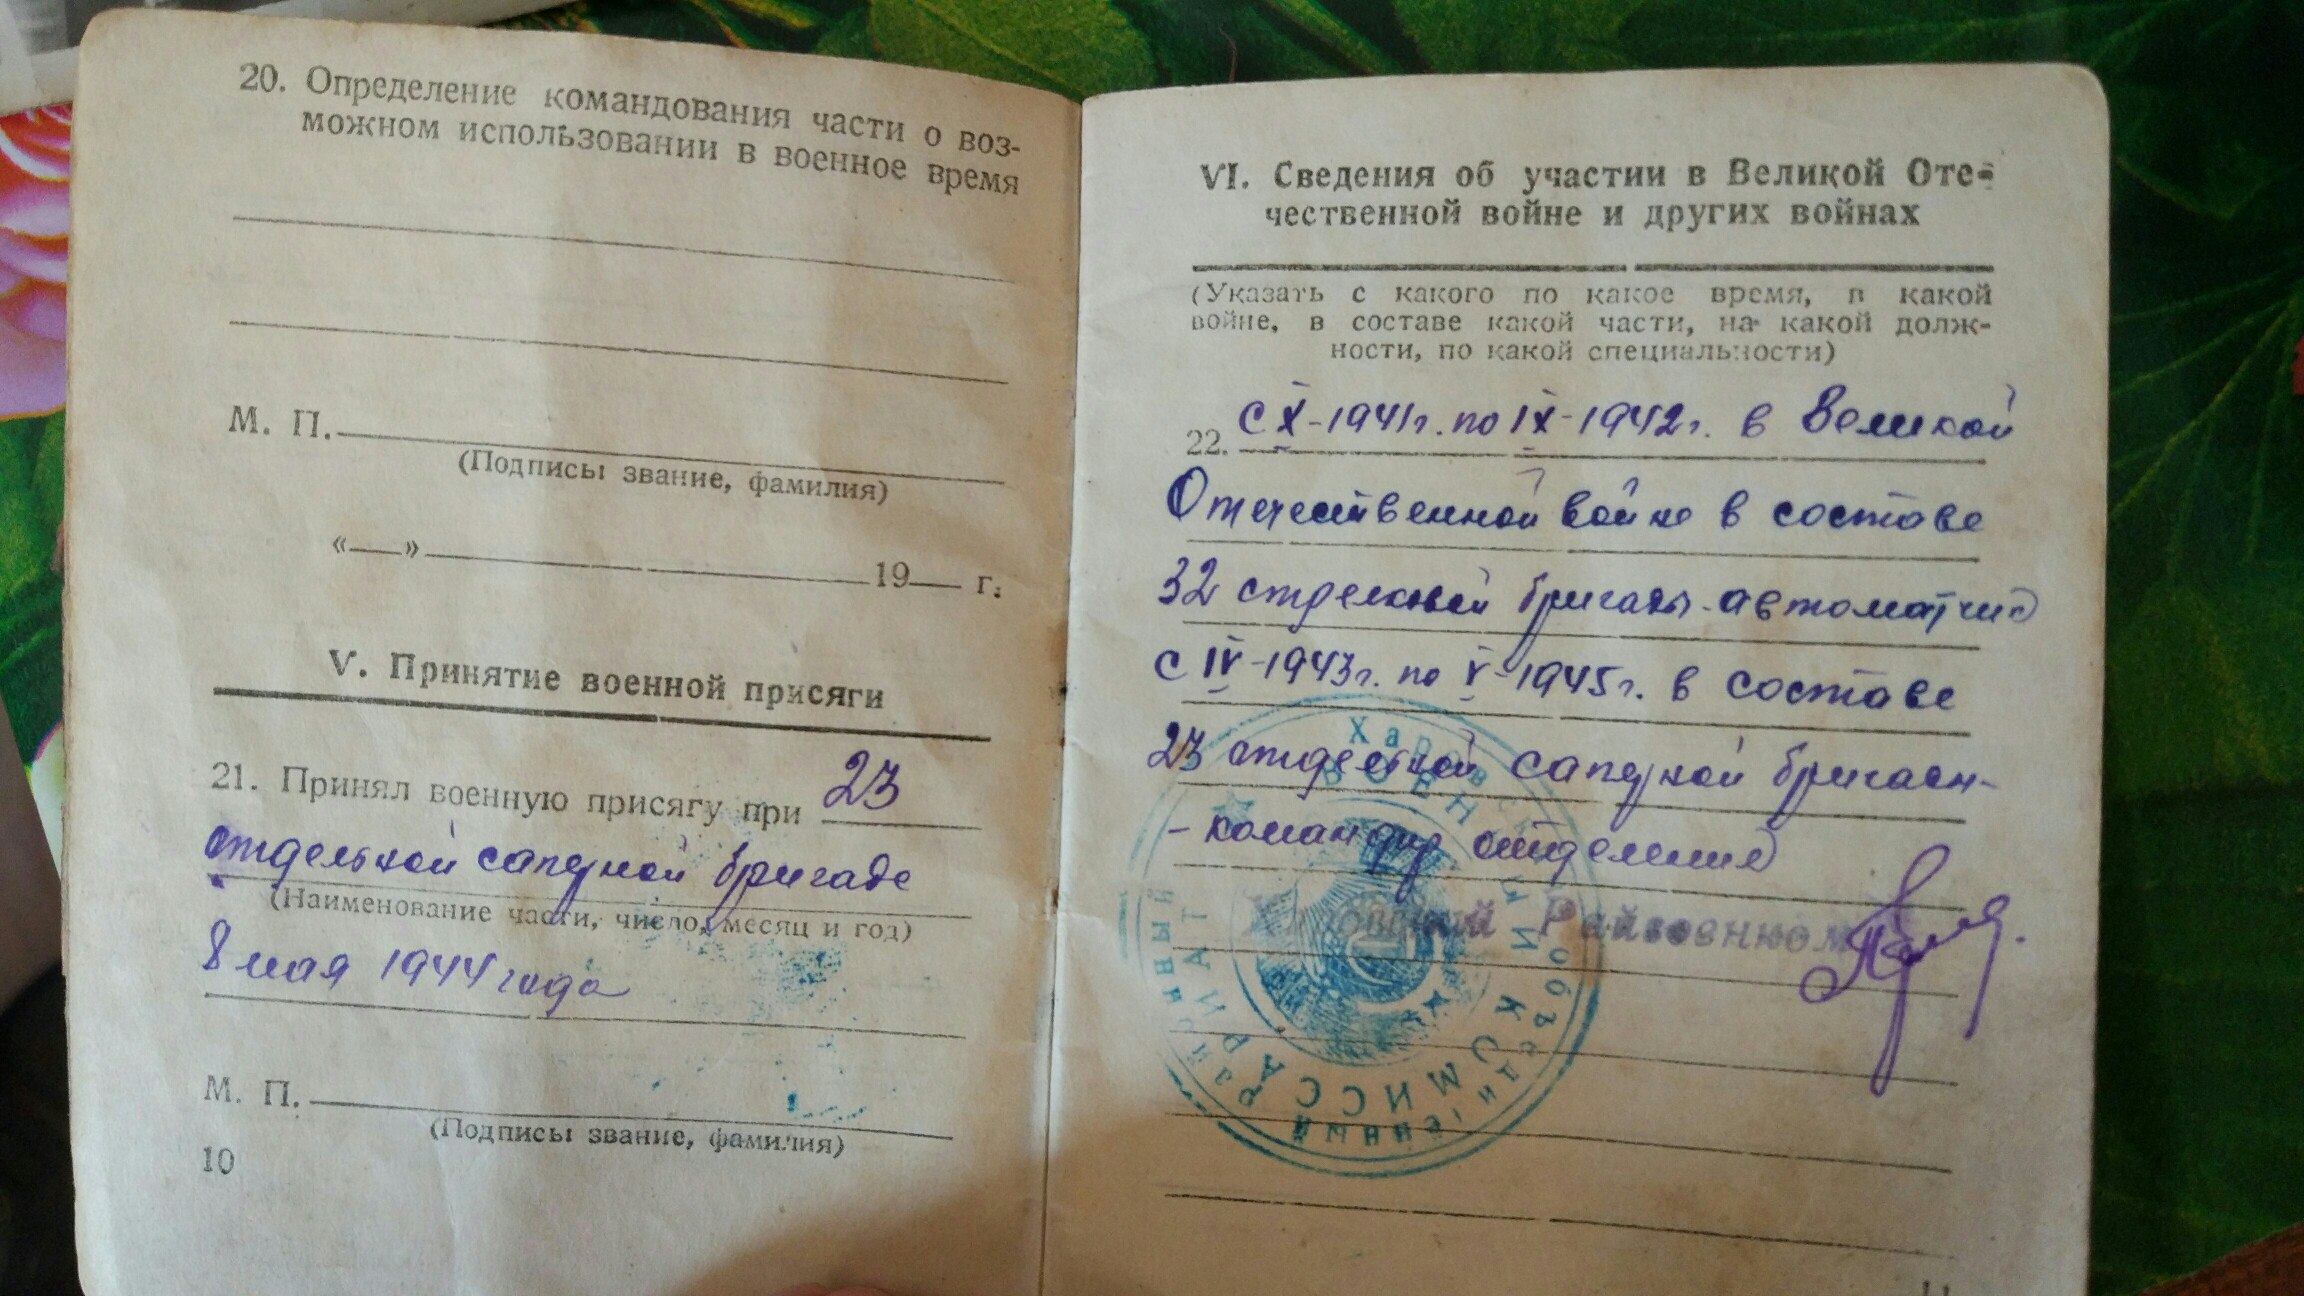 20. Определение командования части о воз-
можном использовании в военное время
М. П.
(Подписы звание, фамилия)
«—» 19— г.
V. Принятие военной присяги
21. Принял военную присягу при 23
отдельной саперной бригаде
(Наименование части, число, месяц и год)
8 мая 1944 года
М. П.
(Подписы звание, фамилия)
10
VI. Сведения об участии в Великой Оте-
чественной войне и других войнах
(Указать с какого по какое время, в какой
войне, в составе какой части, на какой долж-
ности, по какой специальности)
22. С X-1941г. по IX-1942г. в Великой
Отечественной войне в составе
32 стрелковой бригады - автоматчик
с IV-1943г. по V-1945г. в составе
23 отдельной саперной бригады-
- командир отделения
Райвоенком
ОБЪЕДИНЕННЫЙ
ВОЕННЫЙ КОМИССАРИАТ
11